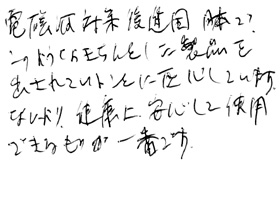 電磁波対策後進国日本で
このようなきちんとした製品を
出されていることに感心しています。
なにより、健康に安心して使用
できるものが一番です。